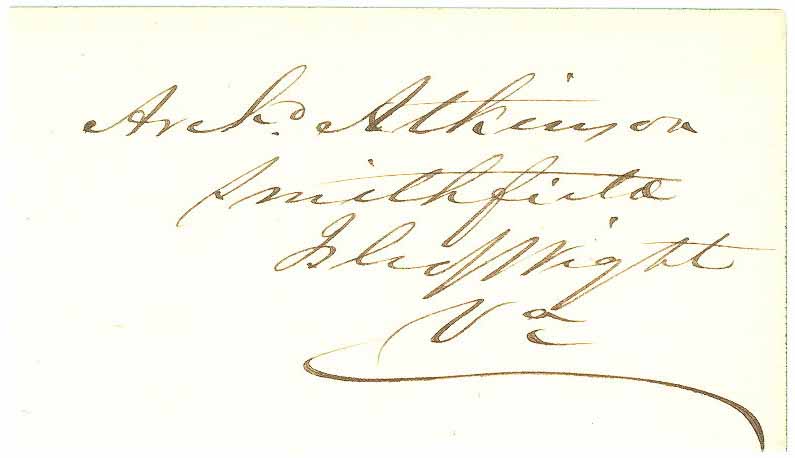 Archd. Atkinson
Smithfield
Isle of Wight
Va